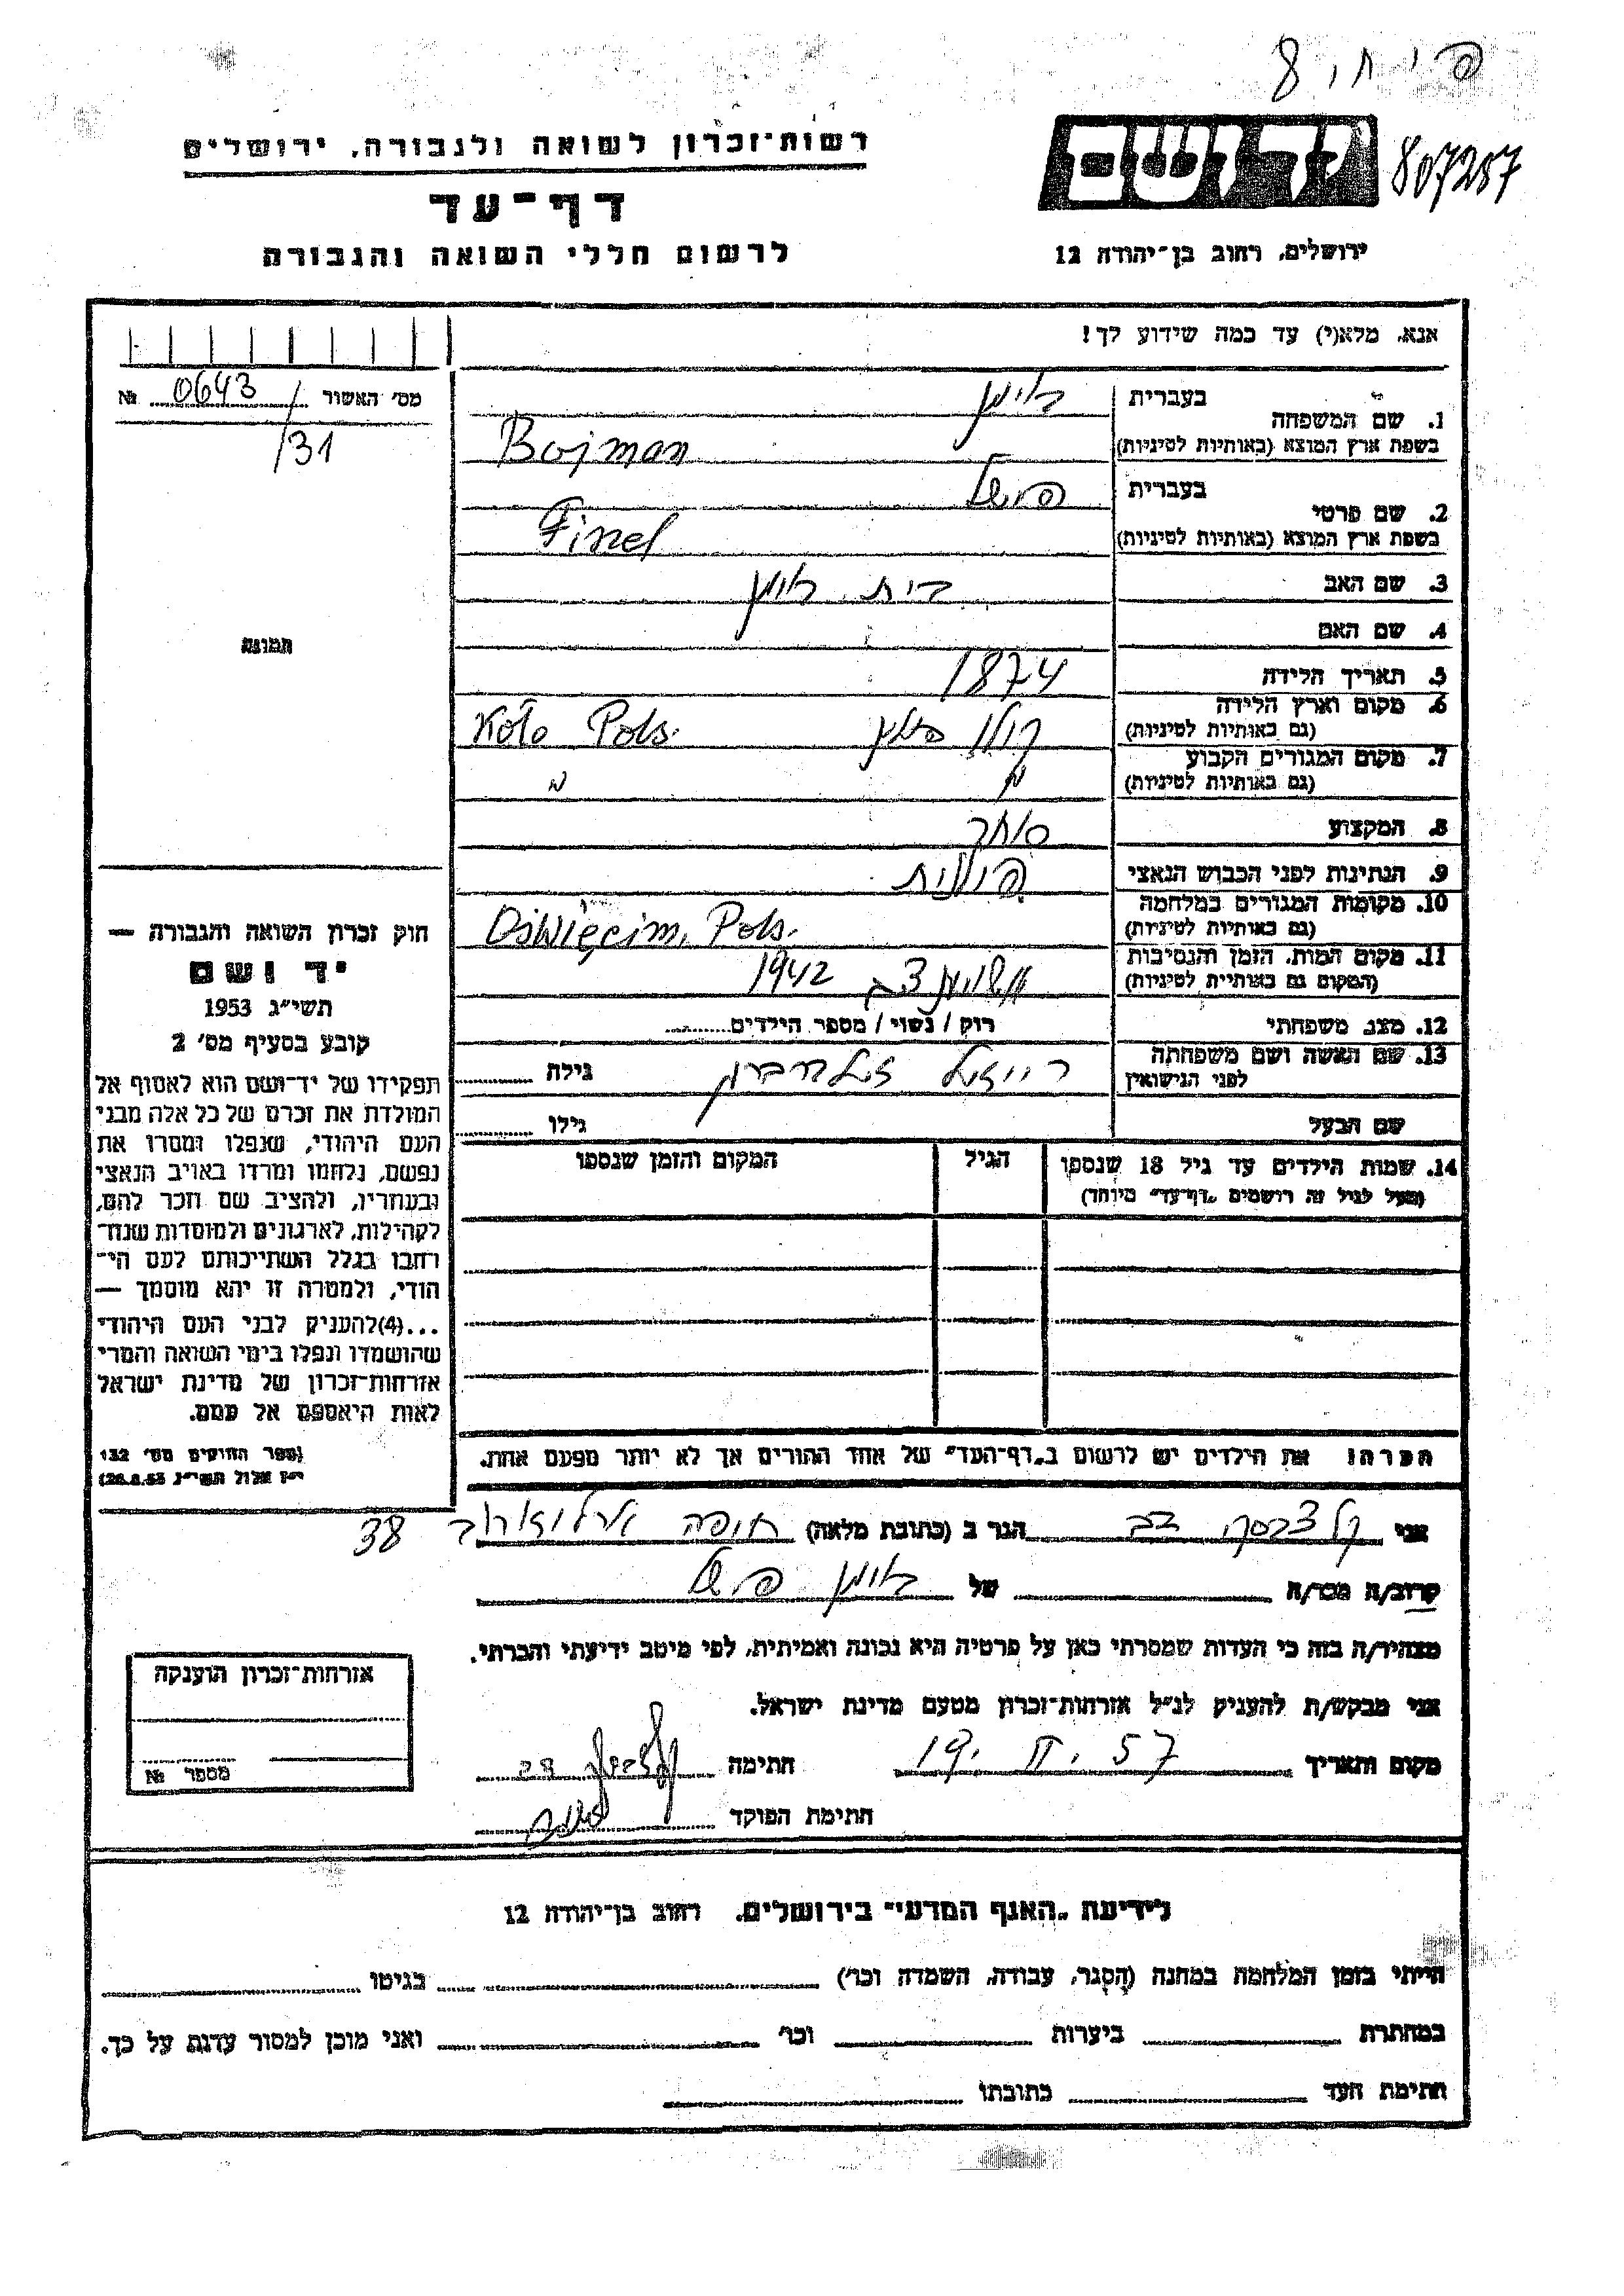 פ י ח, 8
רשות־זכרון לשואה ולגבורה, ירושלים
יד ושם
807257
דף־עד
לרשום חללי השואה והגבורה
ירושלים, רחוב בן־יהודה 12
אנא, מלא(י) עד כמה שידוע לך!
מס׳ האשור № 0643
/31
תמונה
1. שם המשפחה
בעברית בוימן
בשפת ארץ המוצא (באותיות לטיניות) Bojman
2. שם פרטי
בעברית פישל
בשפת ארץ המוצא (באותיות לטיניות) Fiszel
3. שם האב בוימן
4. שם האם
5. תאריך הלידה 1874
6. מקום וארץ הלידה
(גם באותיות לטיניות) קולו פולין Koło Pols.
7. מקום המגורים הקבוע
(גם באותיות לטיניות) " "
8. המקצוע סוחר
9. הנתינות לפני הכבוש הנאצי פולנית
10. מקומות המגורים במלחמה
(גם באותיות לטיניות) Oświęcim, Pols.
11. מקום המות, הזמן והנסיבות
(המקום גם באותיות לטיניות) 1942
12. מצב משפחתי רוק / נשוי / מספר הילדים
13. שם האשה ושם משפחתה
לפני הנישואין רייזל זילברברג גילה
שם הבעל גילו
14. שמות הילדים עד גיל 18 שנספו
(מעל לגיל זה רושמים „דף־עד״ מיוחד)
הגיל
המקום והזמן שנספו
חוק זכרון השואה והגבורה —
יד ושם
תשי״ג 1953
קובע בסעיף מס׳ 2
תפקידו של יד־ושם הוא לאסוף אל
המולדת את זכרם של כל אלה מבני
העם היהודי, שנפלו ומסרו את
נפשם, נלחמו ומרדו באויב הנאצי
ובעוזריו, ולהציב שם וזכר להם,
לקהילות, לארגונים ולמוסדות שנח־
רבו בגלל השתייכותם לעם הי־
הודי, ולמטרה זו יהא מוסמך —
...(4)להעניק לבני העם היהודי
שהושמדו ונפלו בימי השואה והמרי
אזרחות־זכרון של מדינת ישראל
לאות היאספם אל עמם.
(ספר החוקים מס׳ 132
י״ז אלול תשי״ג 28.8.53)
הערה: את הילדים יש לרשום ב„דף־העד״ של אחד ההורים אך לא יותר מפעם אחת.
אני הגר ב (כתובת מלאה) חיפה ארלוזורוב 38
קרוב/ה מכר/ה של בוימן פישל
מצהיר/ה בזה כי העדות שמסרתי כאן על פרטיה היא נכונה ואמיתית, לפי מיטב ידיעתי והכרתי.
אני מבקש/ת להעניק לנ״ל אזרחות־זכרון מטעם מדינת ישראל.
מקום ותאריך 19. II. 57 חתימה
חתימת הפוקד
אזרחות־זכרון הוענקה
מספר №
לידיעת „האגף המדעי״ בירושלים, רחוב בן־יהודה 12
הייתי בזמן המלחמה במחנה (הסגר, עבודה, השמדה וכו׳) בגיטו
במחתרת ביערות וכו׳ ואני מוכן למסור עדות על כך.
חתימת העד כתובתו